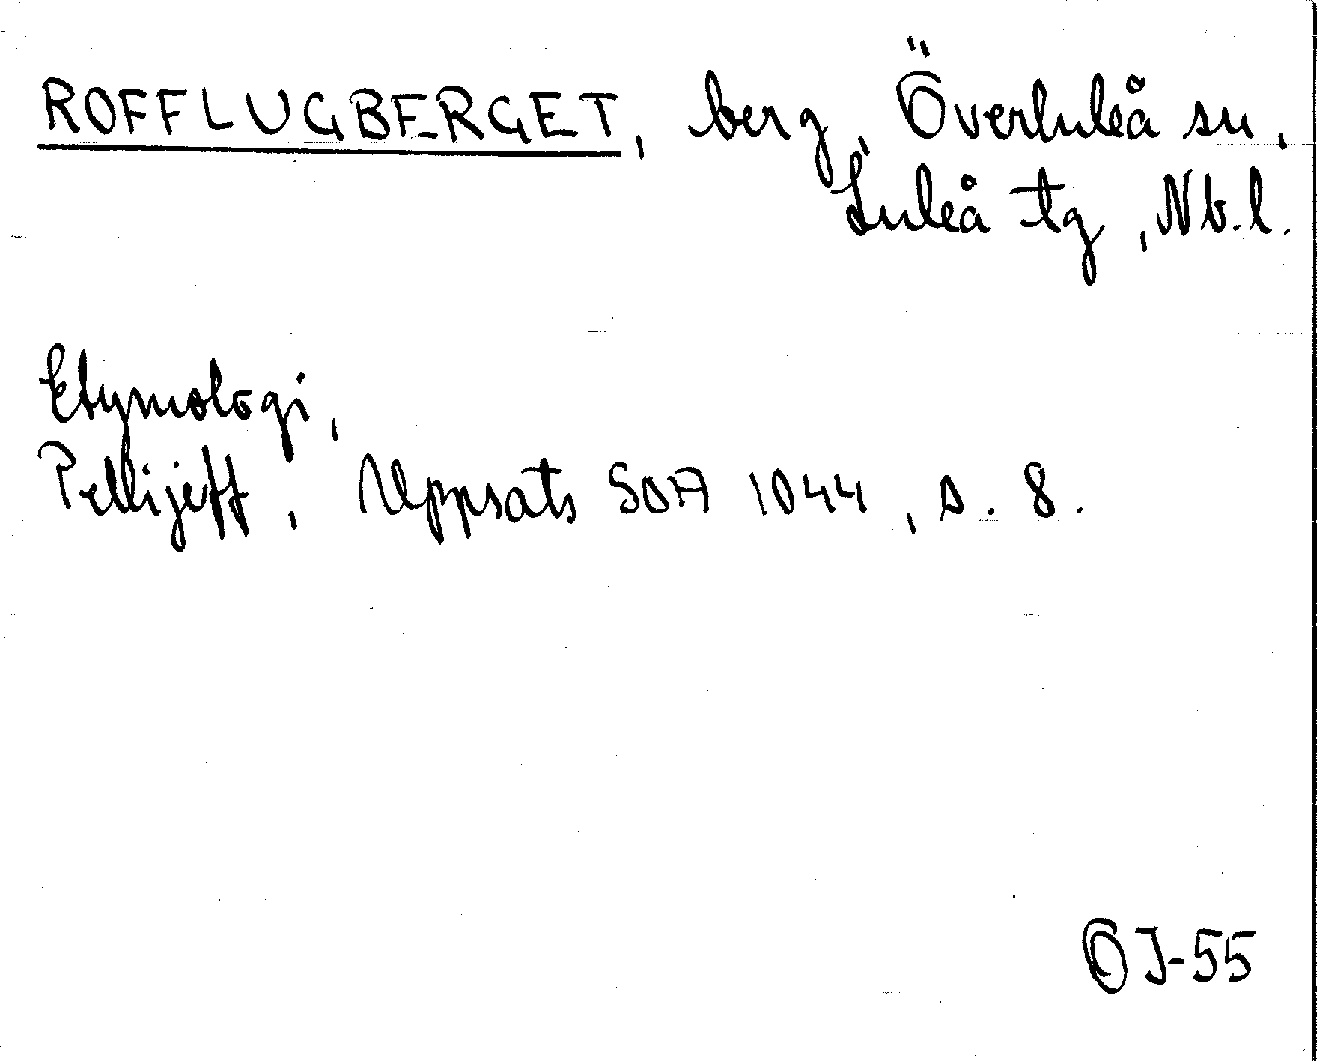 ROFFLUGBERGET, berg, Överluleå sn,
Luleå tg, Nb.l.
Etymologi,
Pellijeff, Uppsats SOA 1044, s. 8.
OJ-55